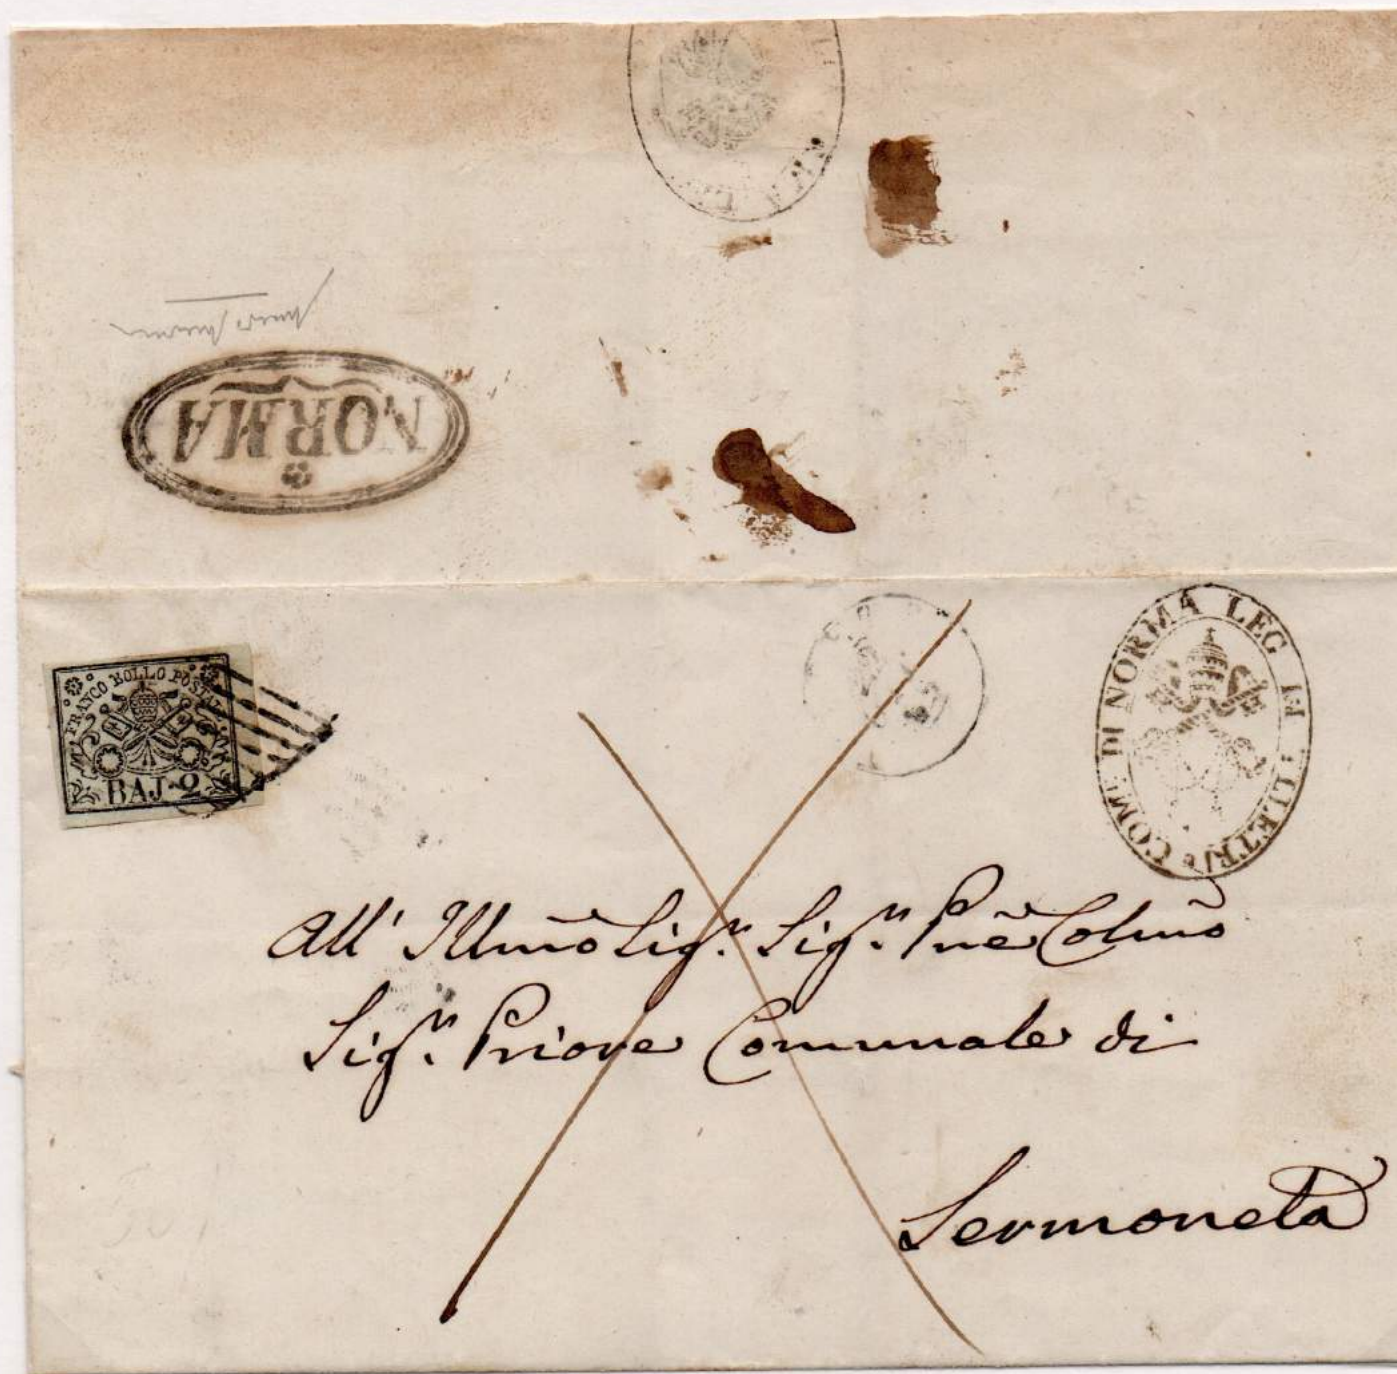 NORMA
FRANCO BOLLO POSTALE
BAJ-2
COM: DI NORMA LEG
All' Illmo Sigr. Sigr. Pne Colmo
Sigr. Priore Comunale di
Sermoneta